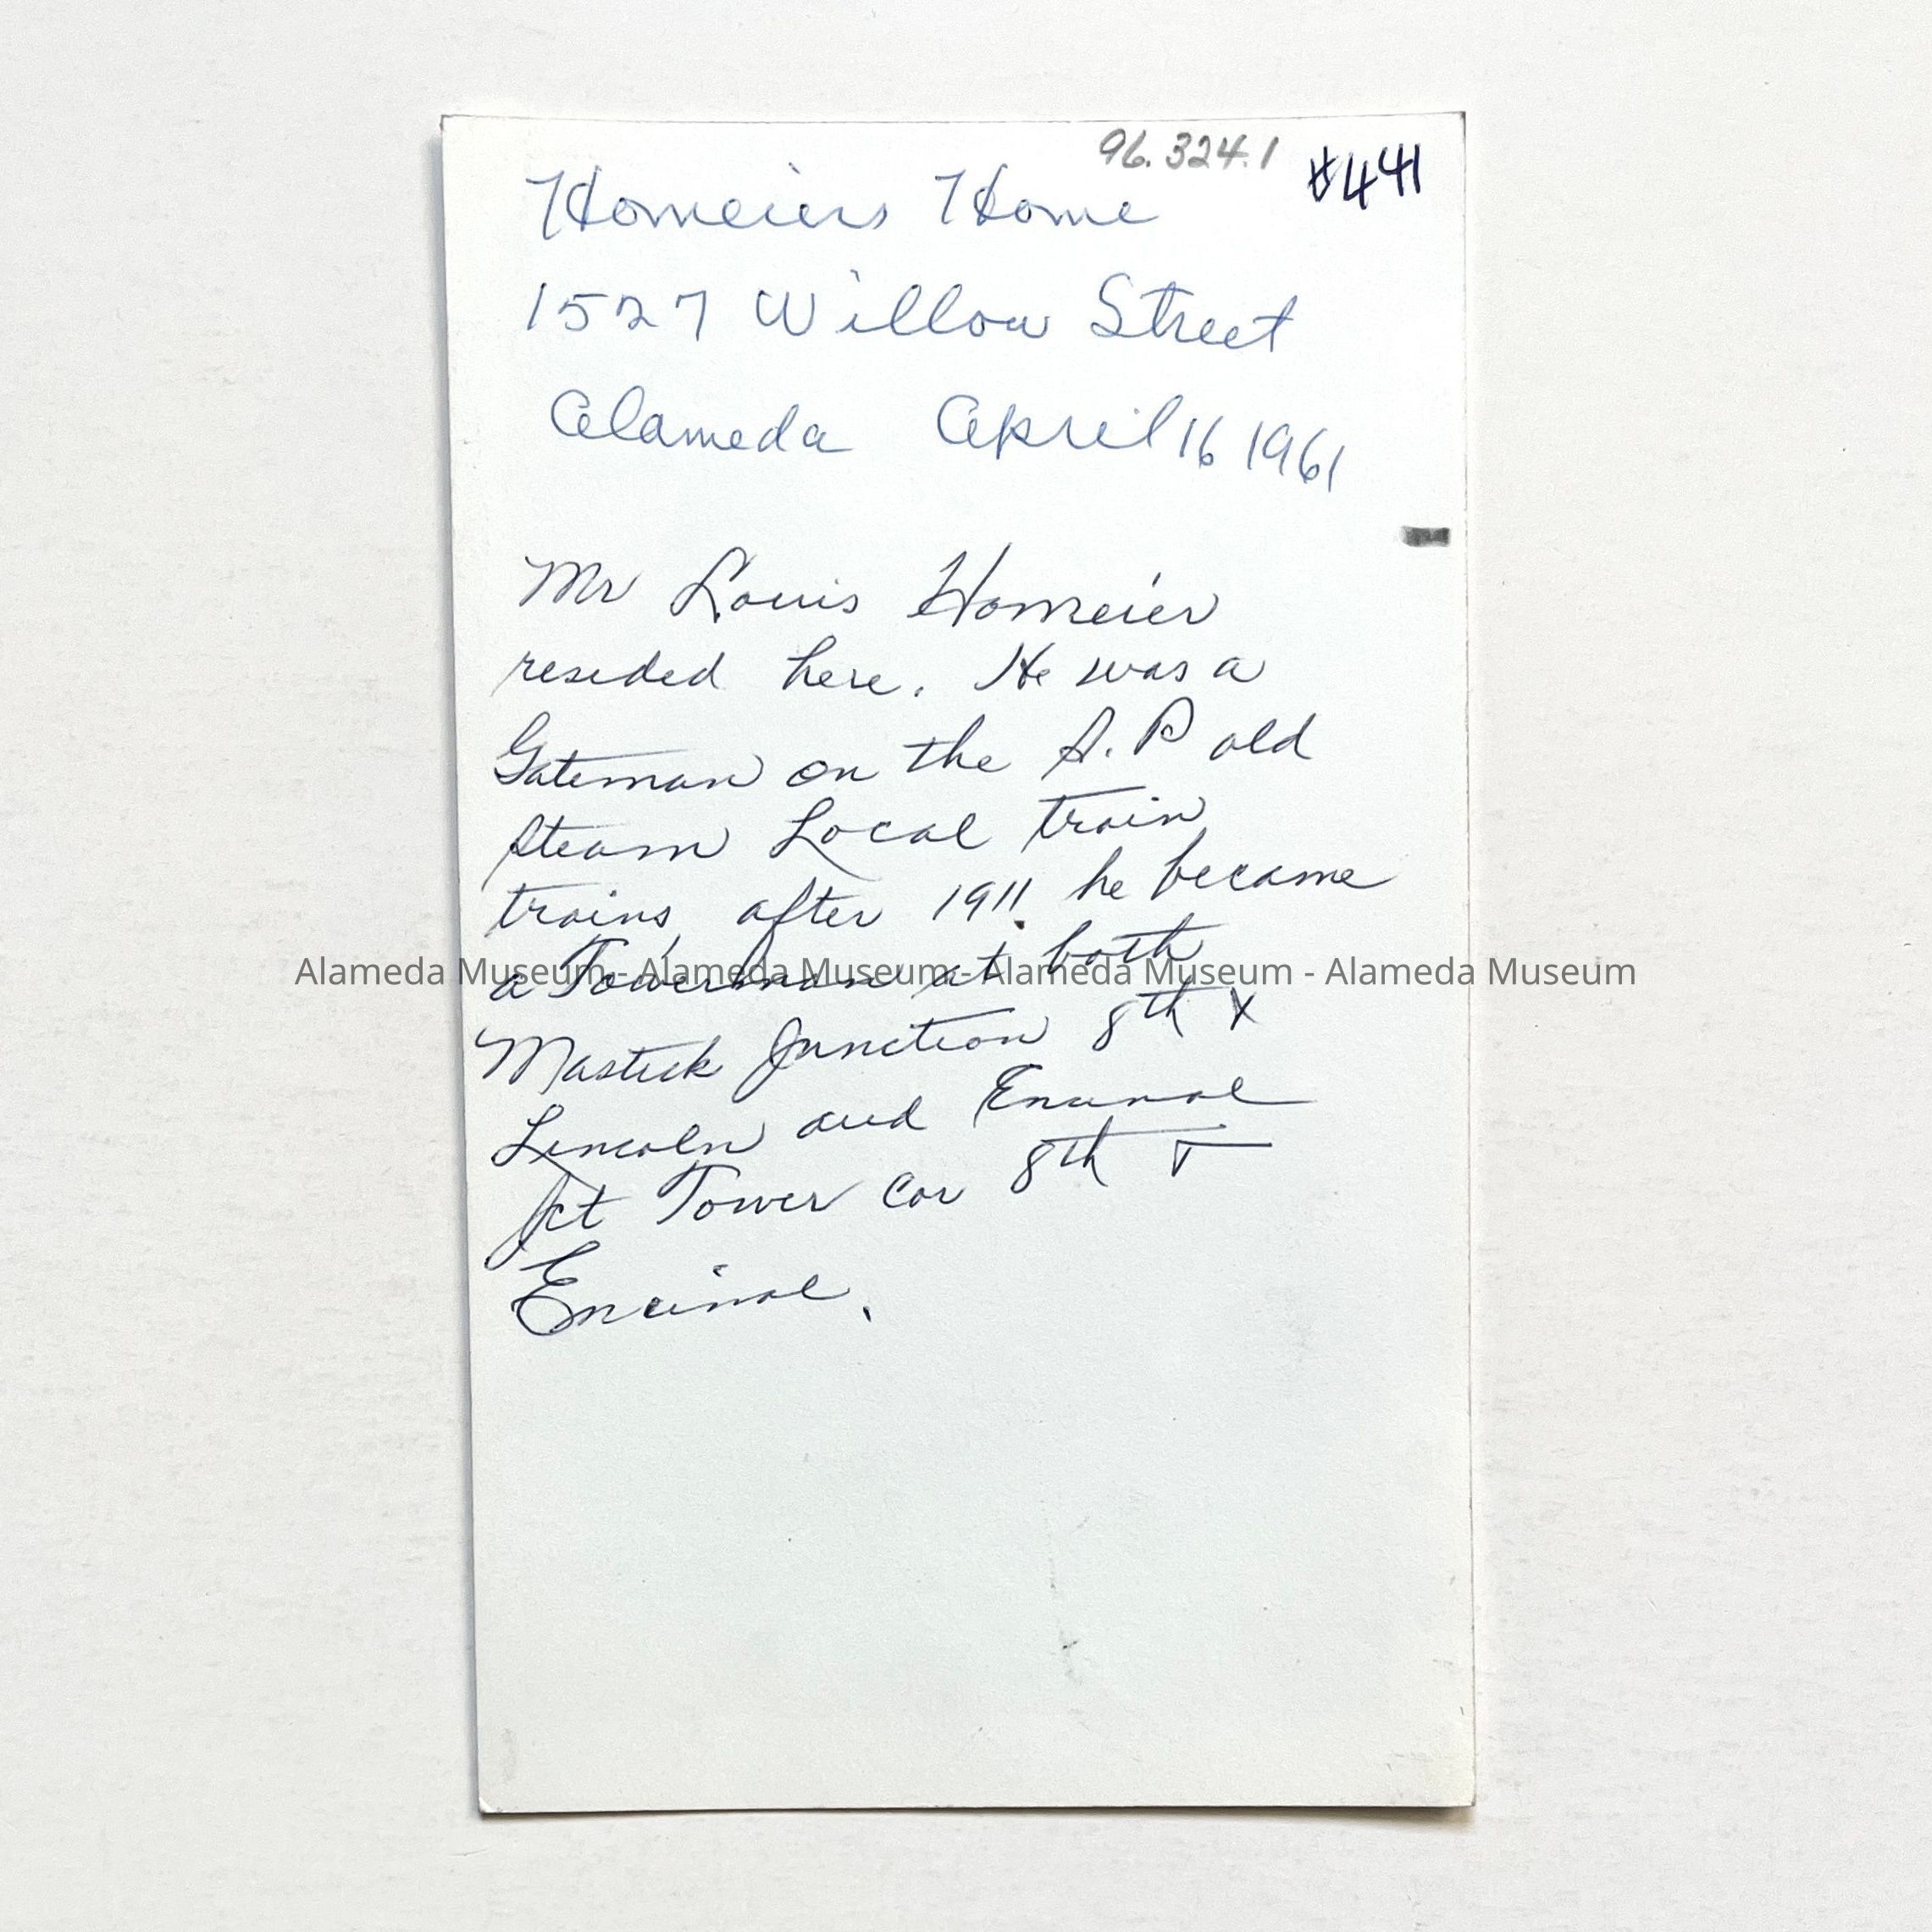 96.324.1 #441
Homeiers Home
1527 Willow Street
Alameda April 16 1961
Mr Louis Homeier
resided here. He was a
Gateman on the S.P old
steam Local train
trains, after 1911 he became
a Towerman at both
Alameda Museum - Alameda Museum - Alameda Museum - Alameda Museum
Mastick Junction 8th &
Lincoln and Encinal
Jct Tower Cor 8th &
Encinal.